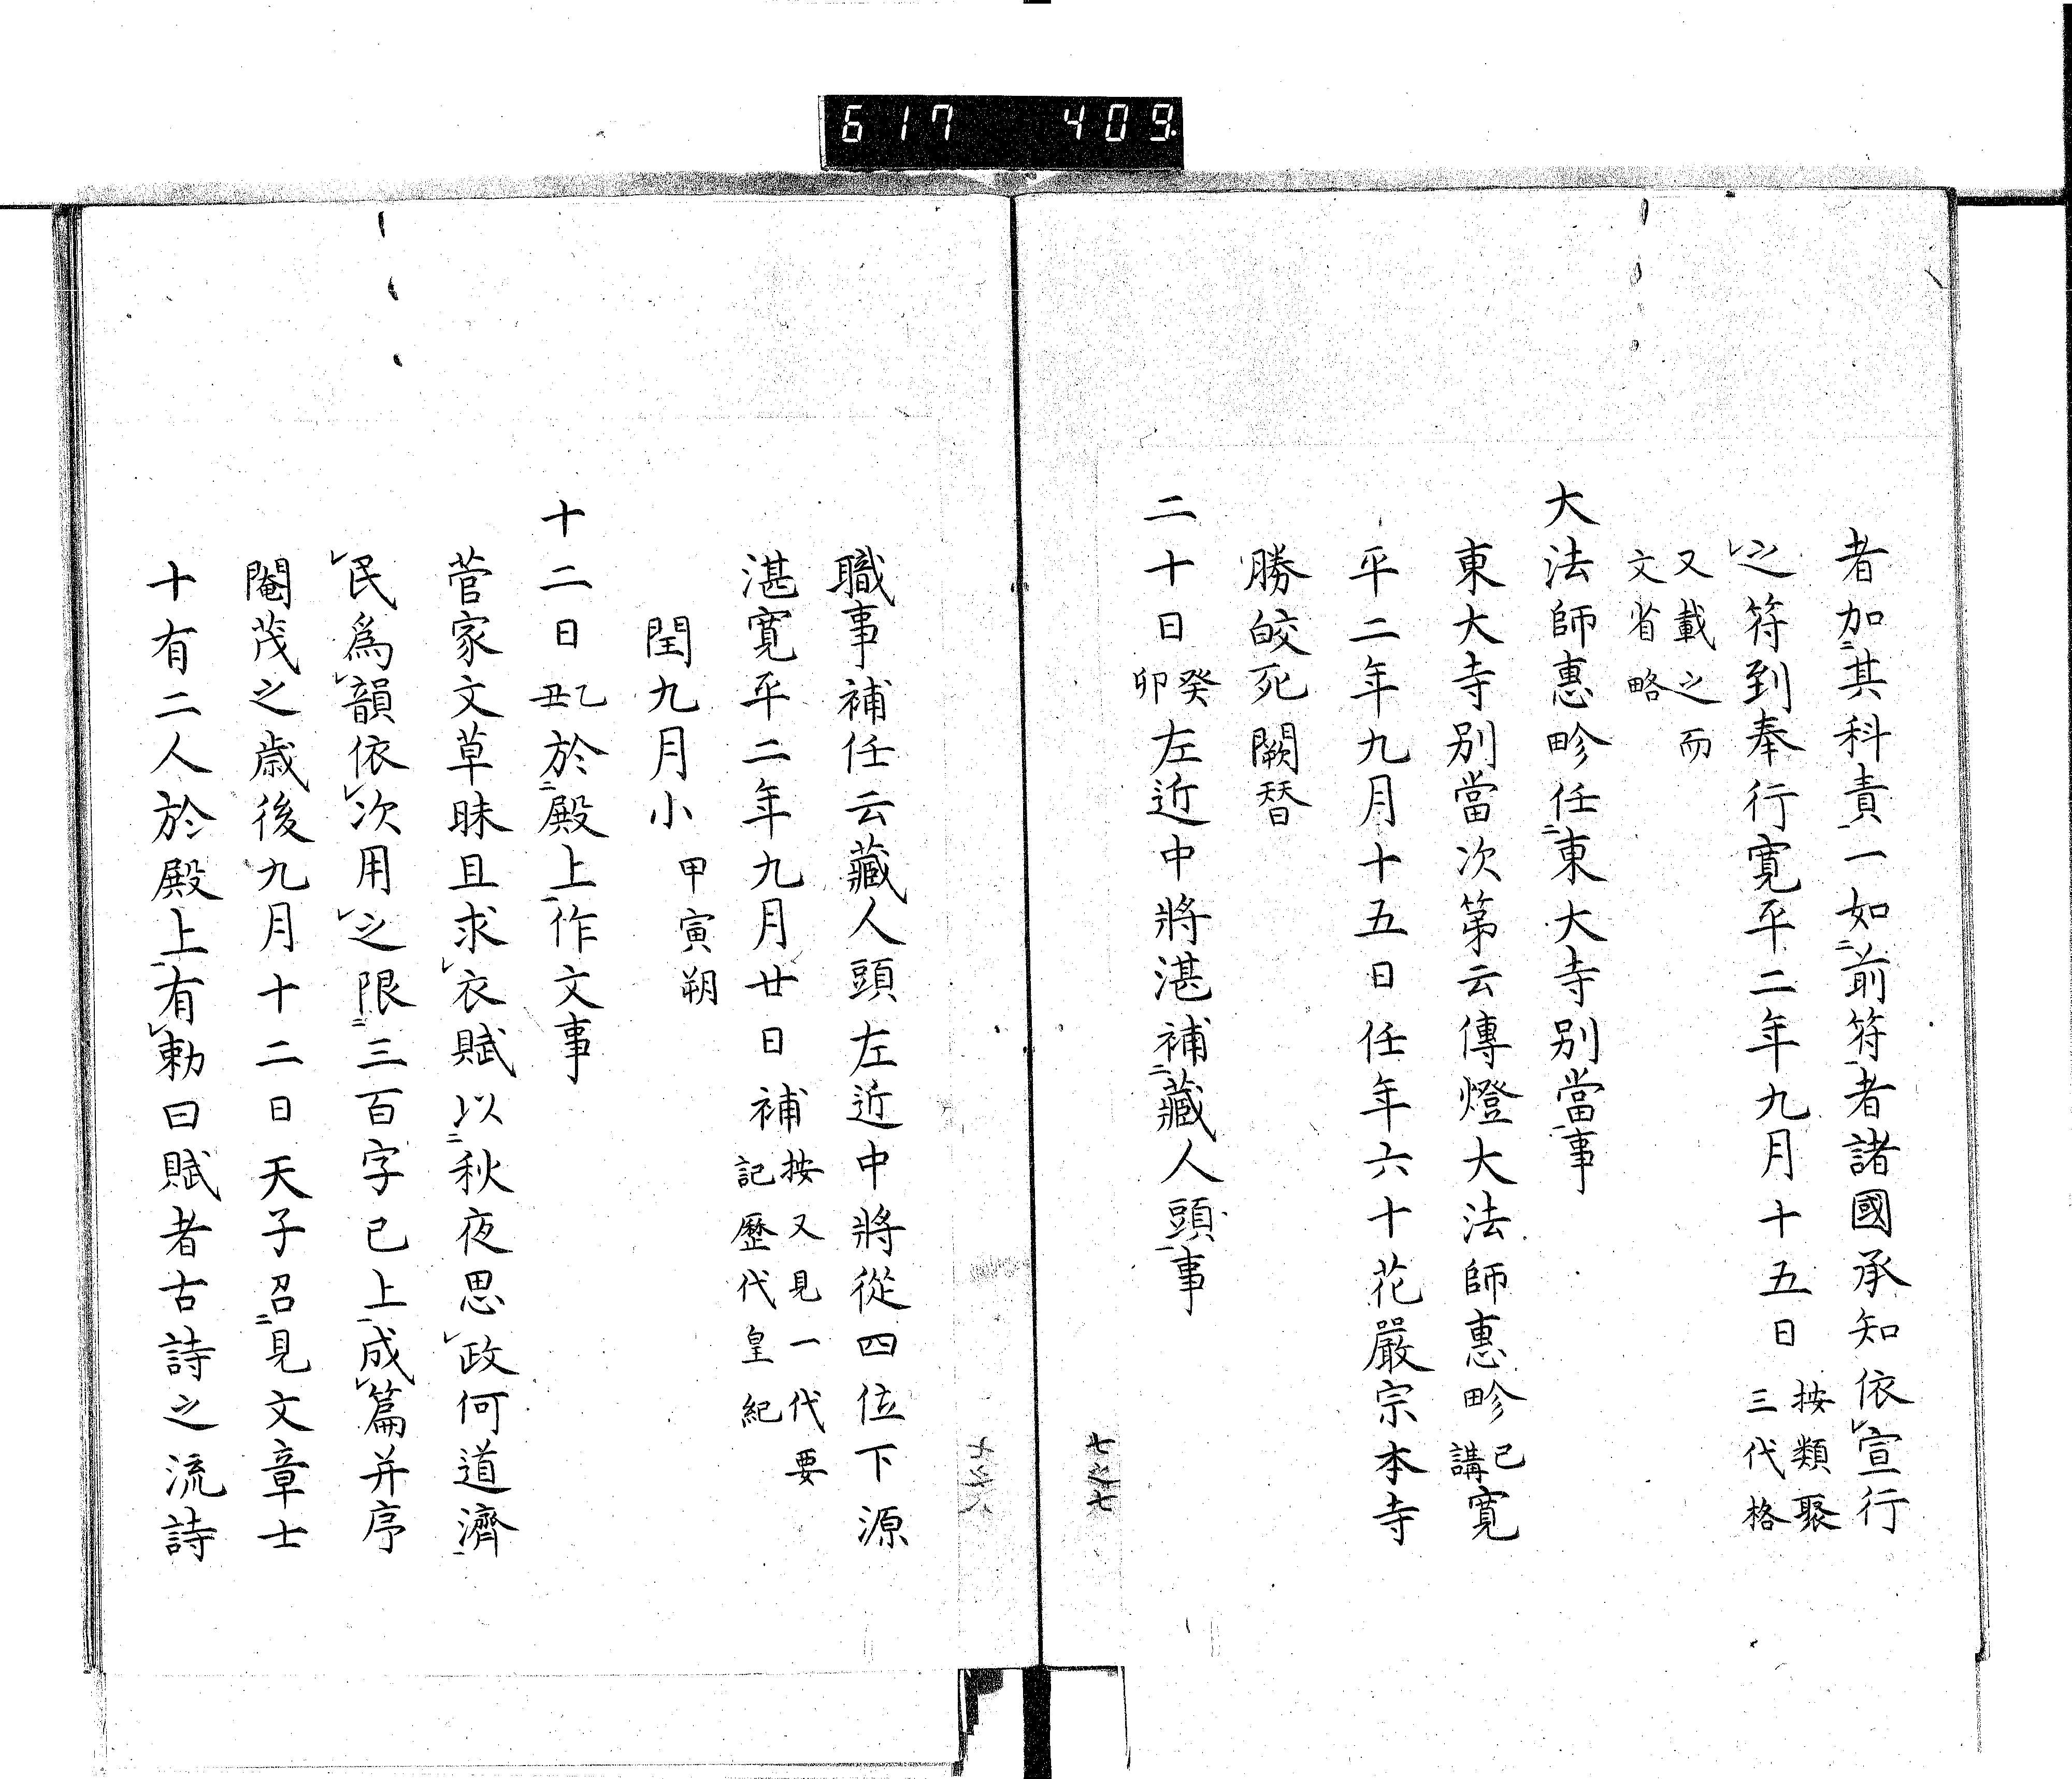 617 409
者加二其科責一一如二前符一者諸國承知依レ宣行
レ之符到奉行寛平二年九月十五日按類聚三代格
又載之而文省略
大法師惠畛任二東大寺別當一事
東大寺別當次第云傳燈大法師惠畛已講寛
平二年九月十五日任年六十花嚴宗本寺
勝皎死闕替
二十日癸卯左近中將湛補二藏人頭一事
七之七
七之八
職事補任云藏人頭左近中將從四位下源
湛寛平二年九月廿日補按又見一代要記歷代皇紀
閏九月小甲寅朔
十二日乙丑於二殿上一作文事
菅家文草昧且求レ衣賦以二秋夜思レ政何道濟一
レ民爲レ韻依レ次用レ之限二三百字已上一成レ篇并序
閹茂之歲後九月十二日天子召二見文章士
十有二人於殿上一有レ勅曰賦者古詩之流詩